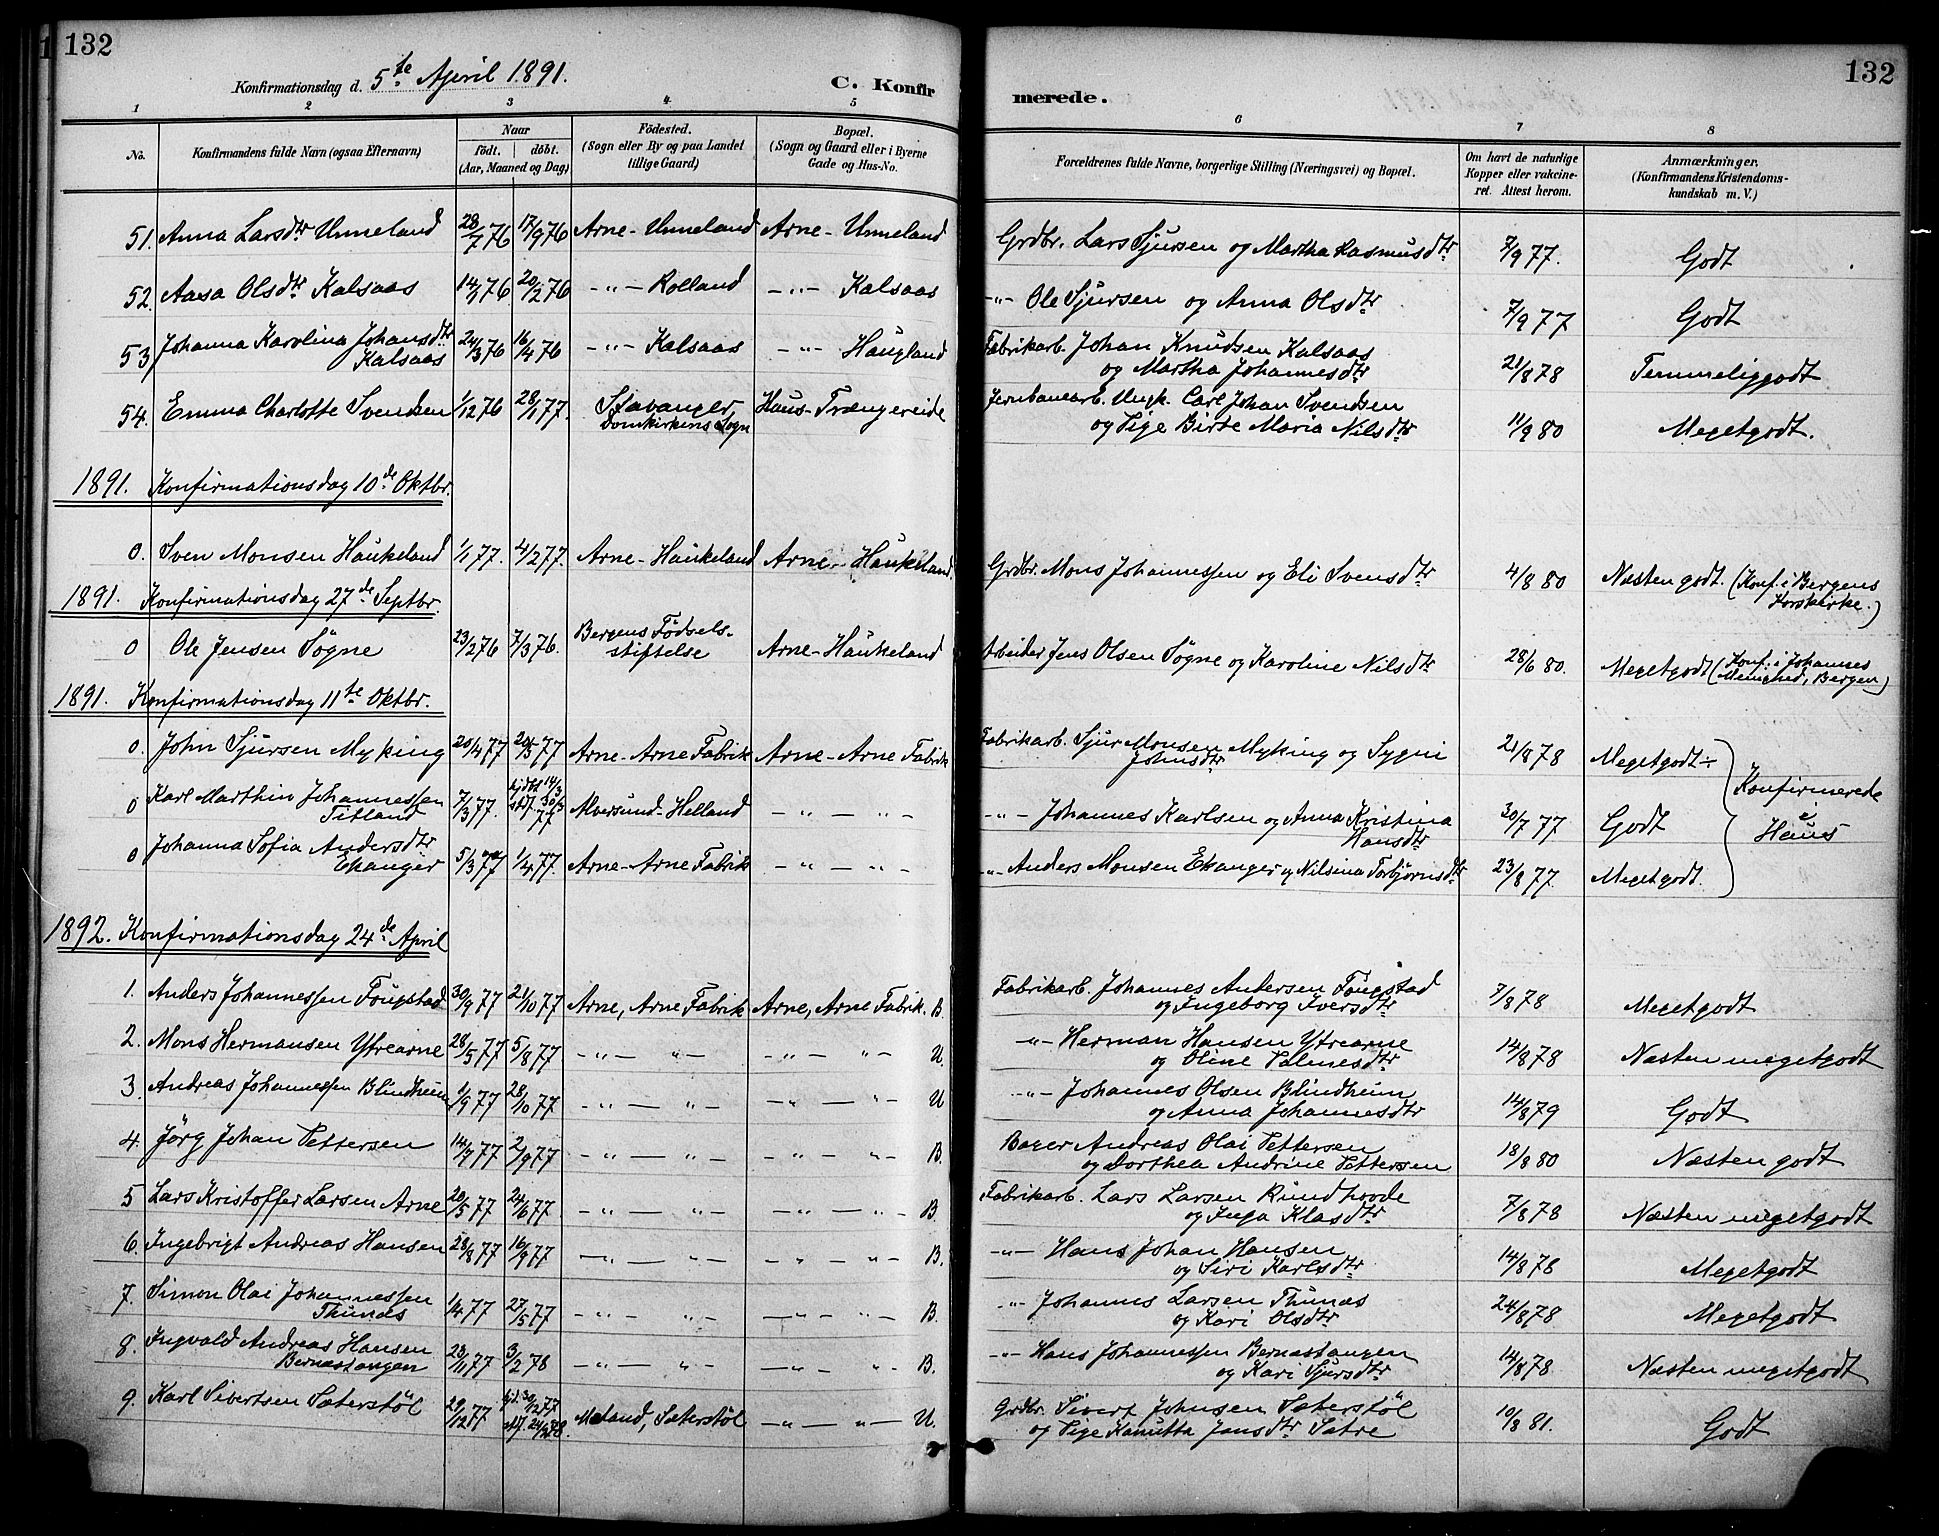 132
132
Konfirmationsdag d. 5te April 1891.
C. Konfir
merede.
1 2 3 4 5 6 7 8
No.
Konfirmandens fulde Navn (ogsaa Efternavn)
Naar
Födt. döbt.
(Aar, Maaned og Dag)
Födested.
(Sogn eller By og paa Landet
tillige Gaard)
Bopæl.
(Sogn og Gaard eller i Byerne
Gade og Hus-No.
Forældrenes fulde Navne, borgerlige Stilling (Næringsvei) og Bopæl.
Om havt de naturlige
Kopper eller vakcine-
ret. Attest herom.
Anmærkninger.
(Konfirmandens Kristendoms-
kundskab m. V.)
51. Anna Larsdtr Unneland 28/7 76 17/9 76 Arne - Unneland Arne - Unneland Grdbr. Lars Sjursen og Martha Rasmusdtr 7/9 77. Godt
52. Aasa Olsdtr Kalsaas 14/1 76 20/2 76 -"- Rolland -"- Kalsaas -"- Ole Sjursen og Anna Olsdtr 7/9 77 Godt
53 Johanna Karolina Johansdtr 24/3 76 16/4 76 -"- Kalsaas -"- Haugland Fabrikarb. Johan Knudsen Kalsaas 21/8 78 Temmeliggodt
Kalsaas og Martha Johannesdtr
54. Emma Charlotte Svendsen 1/12 76 28/1 77. Stavanger Haus - Trængereide Jernbanearb. Ungk. Carl Johan Svendsen 11/9 80 Megetgodt.
Domkirkens Sogn og Pige Birte Maria Nilsdtr
1891. Konfirmationsdag 10de Oktbr.
0. Sven Monsen Haukeland 1/1 77. 4/2 77. Arne - Haukeland Arne - Haukeland. Grdbr. Mons Johannessen og Eli Svensdtr 4/8 80 Næsten godt. (Konf. i Bergens
Korskirke.)
1891. Konfirmationsdag 27de Septbr.
0 Ole Jensen Søgne 23/2 76 7/3 76. Bergens Fødsels- Arne - Haukeland Arbeider Jens Olsen Søgne og Karoline Nilsdtr 28/6 80. Megetgodt (Konf. i Johannes
stiftelse Menighed, Bergen)
1891. Konfirmationsdag 11te Oktbr.
0. John Sjursen Myking 20/4 77 20/5 77 Arne - Arne Fabrik Arne - Arne Fabrik Fabrikarb. Sjur Monsen Myking og Sygni 21/8 78 Megetgodt ÷
Johnsdtr
0 Karl Marthin Johannessen 7/3 77. hjdbt 14/3 Alversund - Helland -"- -"- -"- Johannes Karlsen og Anna Kristina 30/7 77 Godt Konfirmerede
Titland stf. 30/3 77 Hansdtr i
0 Johanna Sofia Andersdtr 5/3 77 1/4 77. Arne - Arne Fabrik -"- -"- -"- Anders Monsen Ekanger og Nilsina Torbjørnsdtr 23/8 77. Megetgodt. Haus
Ekanger
1892. Konfirmationsdag 24de April
1. Anders Johannessen Tougstad 30/9 77 21/10 77 Arne, Arne Fabrik Arne, Arne Fabrik. B. Fabrikarb. Johannes Andersen Tougstad 7/8 78 Megetgodt
og Ingeborg Iversdtr
2. Mons Hermansen Ytrearne 28/5 77 5/8 77 -"- "- -"- "- U. -"- Herman Hansen Ytrearne 14/8 78 Næsten megetgodt
og Oline Palmesdtr
3. Andreas Johannessen Blindheim 1/9 77 28/10 77 -"- "- -"- "- U -"- Johannes Olsen Blindheim 14/8 79 Godt
og Anna Johannesdtr
4. Jörg Johan Pettersen 14/7 77 2/9 77 -"- "- -"- "- B. Bager Andreas Olai Pettersen 18/8 80 Næsten godt
og Dorthea Andrine Pettersen
5 Lars Kristoffer Larsen Arne 20/5 77 24/6 77. -"- "- -"- "- B. Fabrikarb. Lars Larsen Rundhovde 7/8 78 Næsten megetgodt
og Inga Klasdtr
6. Ingebrigt Andreas Hansen 28/8 77 16/9 77 -"- "- -"- "- B. -"- Hans Johan Hansen 14/8 78 Megetgodt
og Siri Karlsdtr
7. Simon Olai Johannessen 1/4 77 27/5 77 -"- "- -"- "- B. -"- Johannes Larsen Thunæs 24/8 78 Megetgodt
Thunæs og Kari Olsdtr
8. Ingvald Andreas Hansen 23/11 77 3/2 78 -"- "- -"- "- B. -"- Hans Johannessen Bernæstangen 14/8 78 Næsten megetgodt
Bernæstangen og Kari Sjursdtr
9. Karl Sivertsen Sæterstøl 29/12 77 hjd. 30/12 77 Meland, Sæterstøl -"- "- U. Grdbr. Sivert Johnsen Sæterstøl 10/8 81. Godt
stf. 24/2 78 og Pige Kanutta Jansdtr Sætre